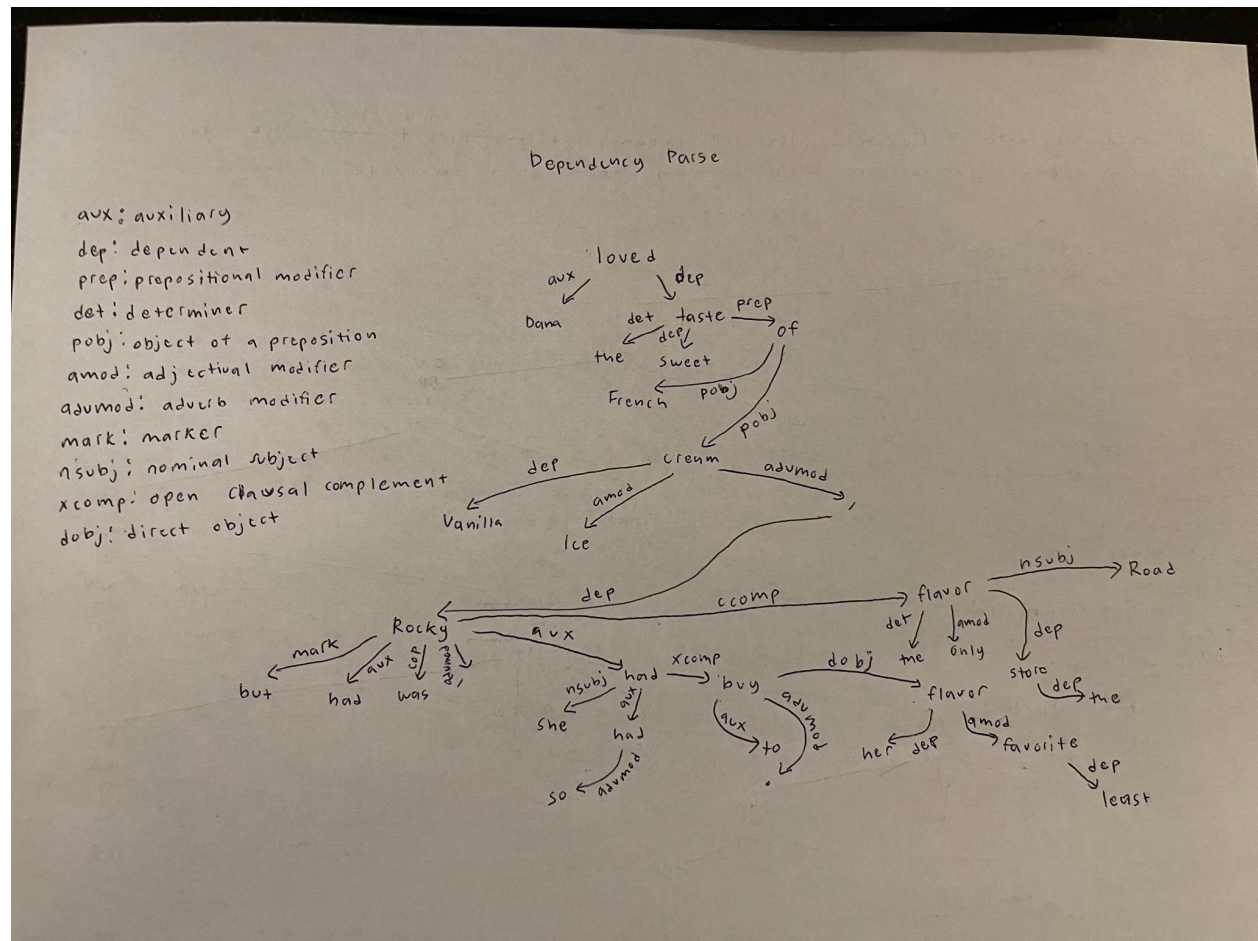 Dependency Parse
aux: auxiliary
dep: dependent
prep: prepositional modifier
det: determiner
pobj: object of a preposition
amod: adjectival modifier
advmod: adverb modifier
mark: marker
nsubj: nominal subject
xcomp: open clausal complement
dobj: direct object
loved
aux dep
Dana
det taste prep
of
the dep sweet
French pobj
pobj
dep cream advmod
amod
Vanilla
Ice
,
dep ccomp flavor nsubj Road
Rocky aux
mark aux cop advmod
det amod dep
the only
but had was ,
nsubj had xcomp buy dobj flavor
store dep the
she aux
had
aux advmod
to
her dep
amod
favorite
so advmod
.
dep
least